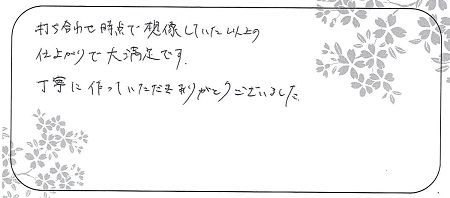 打ち合わせ時点で想像していた以上の
仕上がりで大満足です.
丁寧に作っていただきありがとうございました.